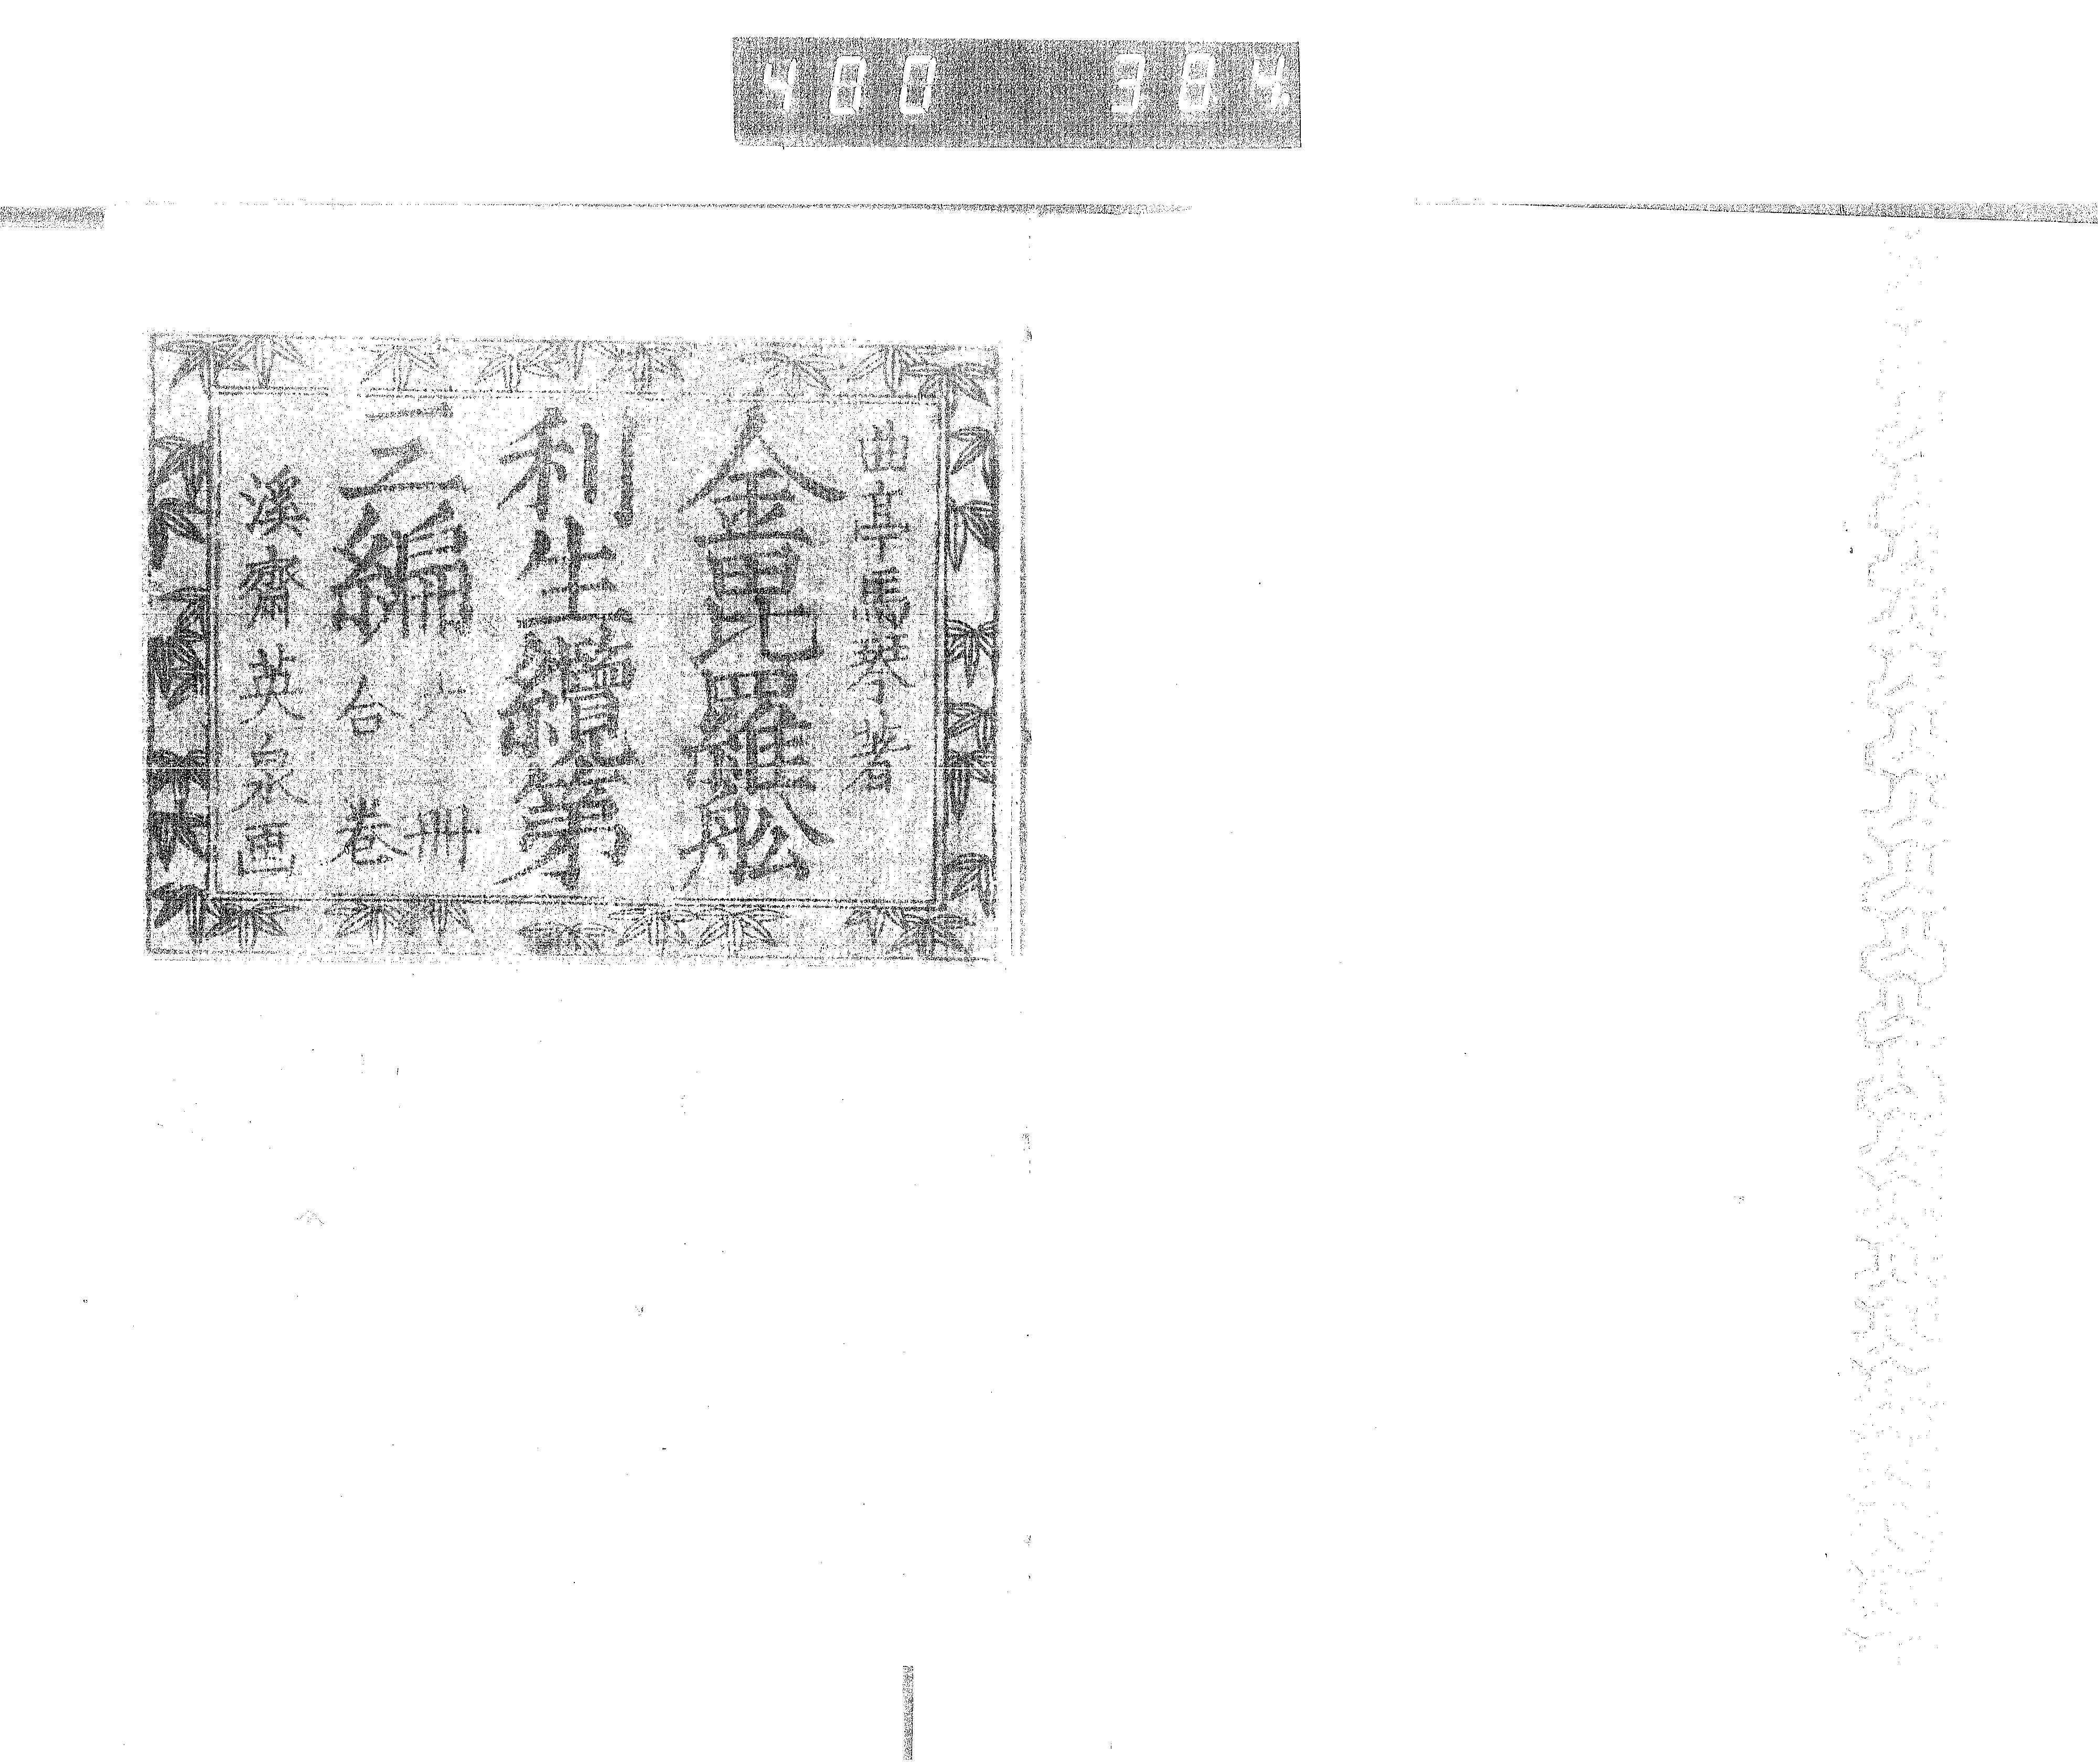 400 384
曲亭馬琴著
金毘羅舩
利生纜第
三編
六冊
合巻
溪齋英泉画